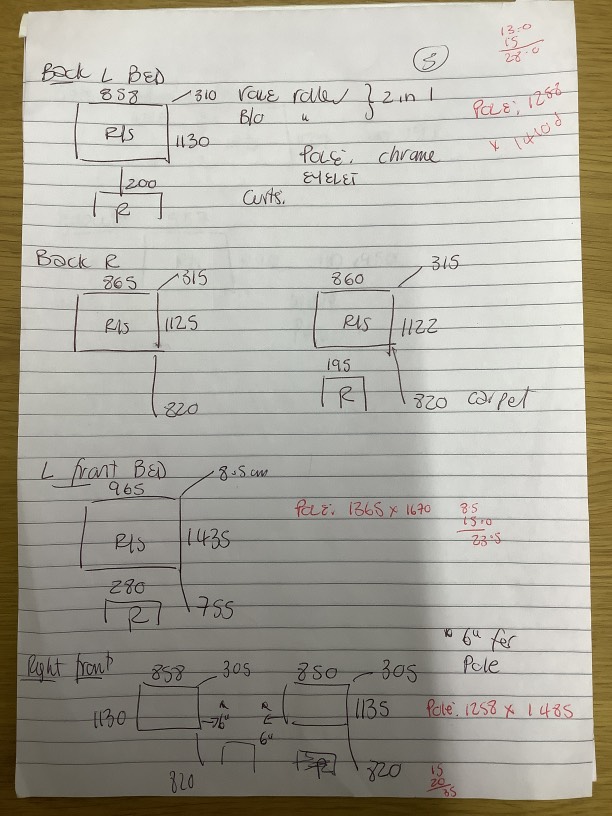 S
13.0
15
28.0
Back L BED
858
310
R/S
1130
200
R
roller } 2 in 1
B/O "
Pole: chrome
EYELET
Curts.
Pole: 1258
x 1410d
Back R
865
315
R/S
1125
820
860
315
R/S
1122
195
R
820 carpet
L front BED
965
8.5cm
R/S
1435
280
R
755
Pole: 1365 x 1670
8.5
15.0
23.5
Right front
858
305
1130
6"
820
850
305
1135
6"
820
6" for
Pole
Pole: 1258 x 1485
15
20
35